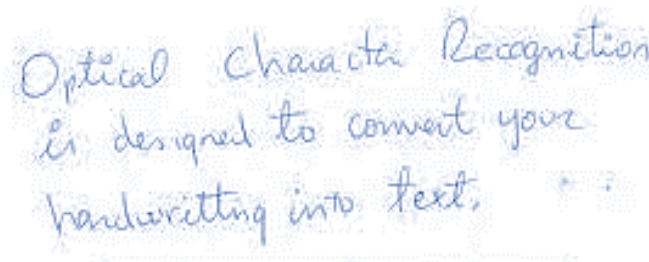 Optical Character Recognition
is designed to convert your
handwritting into text.